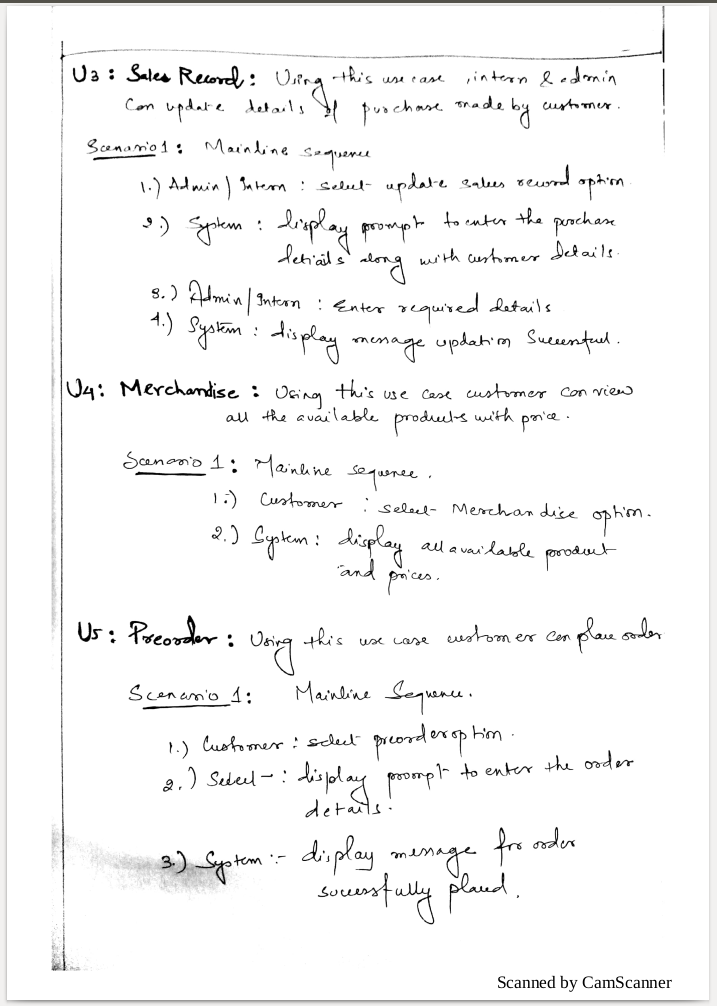 U3 : Sales Record : Using this use case , intern & admin
can update details of purchase made by customer .
Scenario 1 : Mainline sequence
1.) Admin / Intern : select update sales record option
2.) System : display prompt to enter the purchase
details along with customer details .
3.) Admin / Intern : Enter required details
4.) System : display message updation Successful .
U4 : Merchandise : Using this use case customer can view
all the available products with price .
Scenario 1 : Mainline sequence .
1.) Customer : select Merchandise option .
2.) System : display all available product
and prices .
U5 : Preorder : Using this use case customer can place order
Scenario 1 : Mainline Sequence .
1.) Customer : select preorder option .
2.) Select - : display prompt to enter the order
details .
3.) System :- display message for order
successfully placed .
Scanned by CamScanner